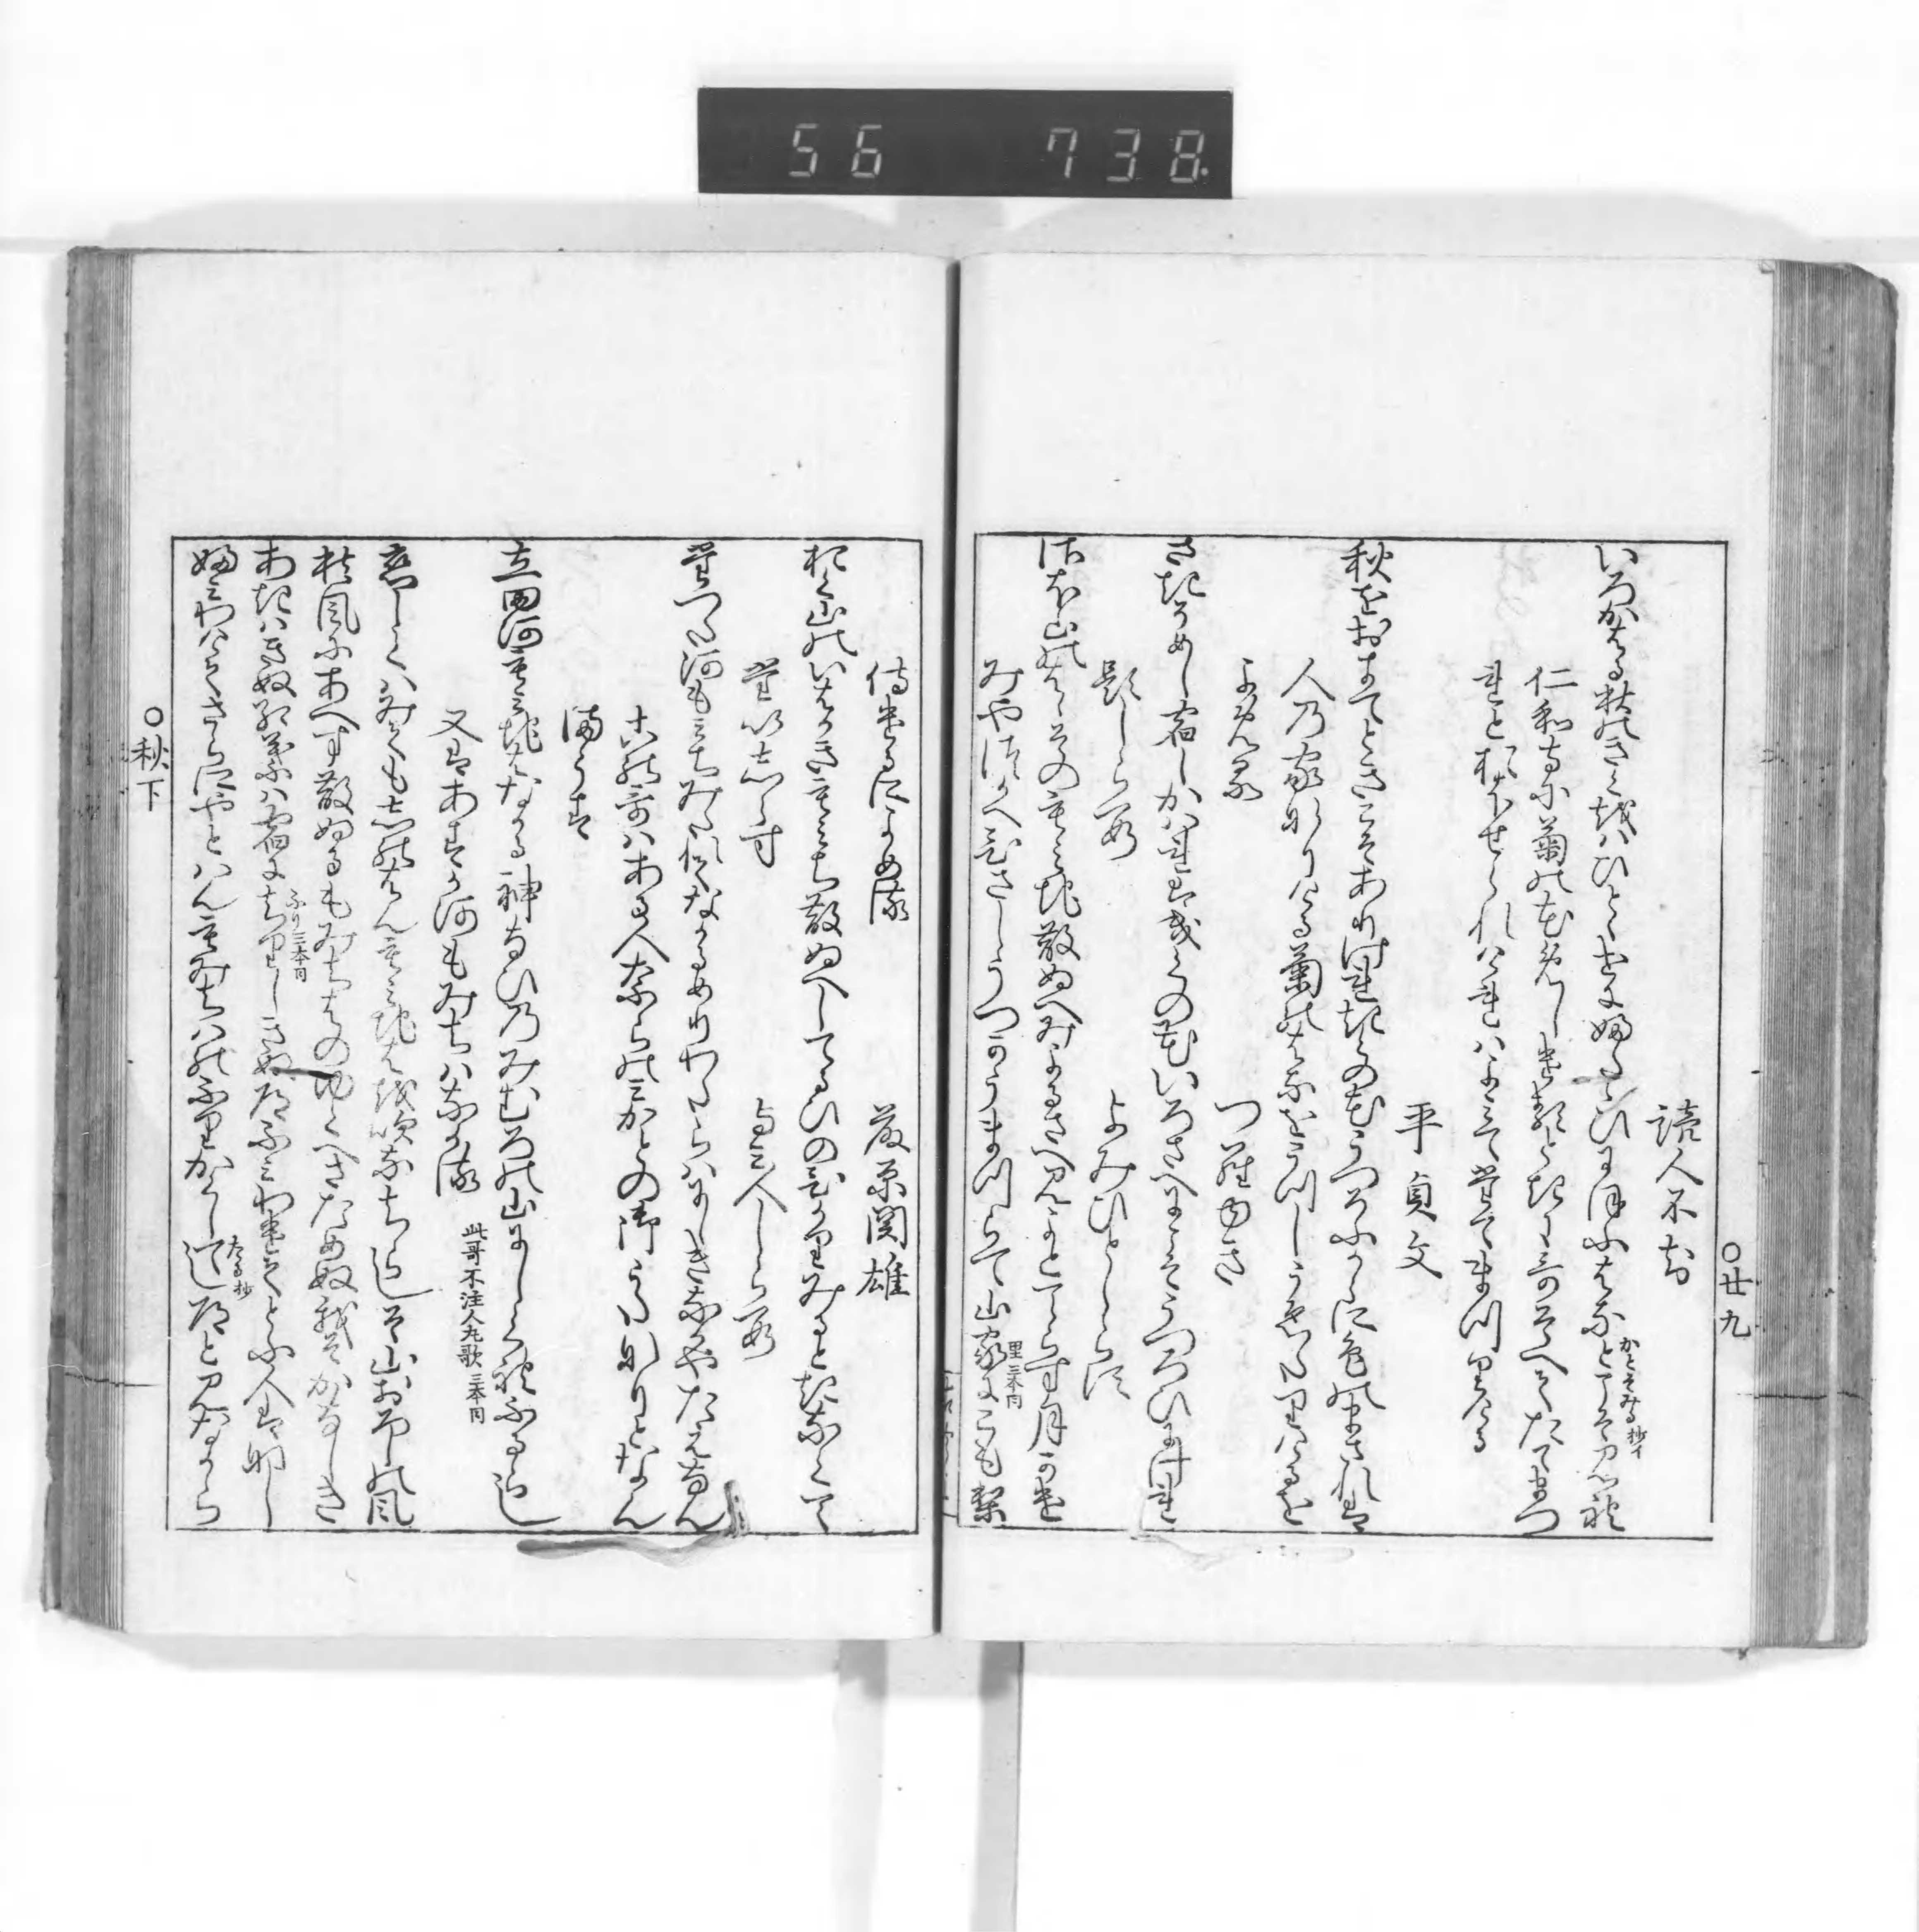 ○廿九
読人不知
いろかはる秋のきくをはひとゝせにふたゝひにほふはなとこそみれ
かとそみる 抄イ
仁和寺に菊のはなめしける時に哥そへてたてまつ
れとおほせられけれはよみてたてまつりける
平貞文
秋をおきてときこそありけれ菊の花うつろふからに色のまされは
人の家なりける菊のはなをうつしうゑたりけるを
よめる　つらゆき
さきそめし宿しかはれは菊の花いろさへにこそうつろひにけれ
題しらす　よみひとしらす
佐ほ山のはゝそのもみち散ぬへみよるさへみよとてらす月かけ
みやつかへひさしうつかうまつらて山家にこもり
里 三本同
侍けるによめる　藤原関雄
おく山のいはかきもみち散ぬへしてるひのひかりみるときなくて
題しらす　よみ人しらす
たつた河もみちみたれてなかるめりわたらはにしきなかやたえなん
この哥はある人ならのみかとの御うたなりとなん
まうす
立田河もみちはなかる神なひのみむろの山にしくれふるらし
又はあすか河もみちはなかる　此哥不注人丸歌 三本同
恋しくはみてもしのはんもみちはを吹なちらしそ山おろしの風
秋風にあへす散ぬるもみちはのゆくへさためぬ我そかなしき
あきはきぬ紅葉は宿にちりしきぬ道ふみわけてとふ人はなし
ふり三本同
ふみわけてさらにやとはんもみちはのふりかくしてし道とみなから
たる抄
○秋下
56 738